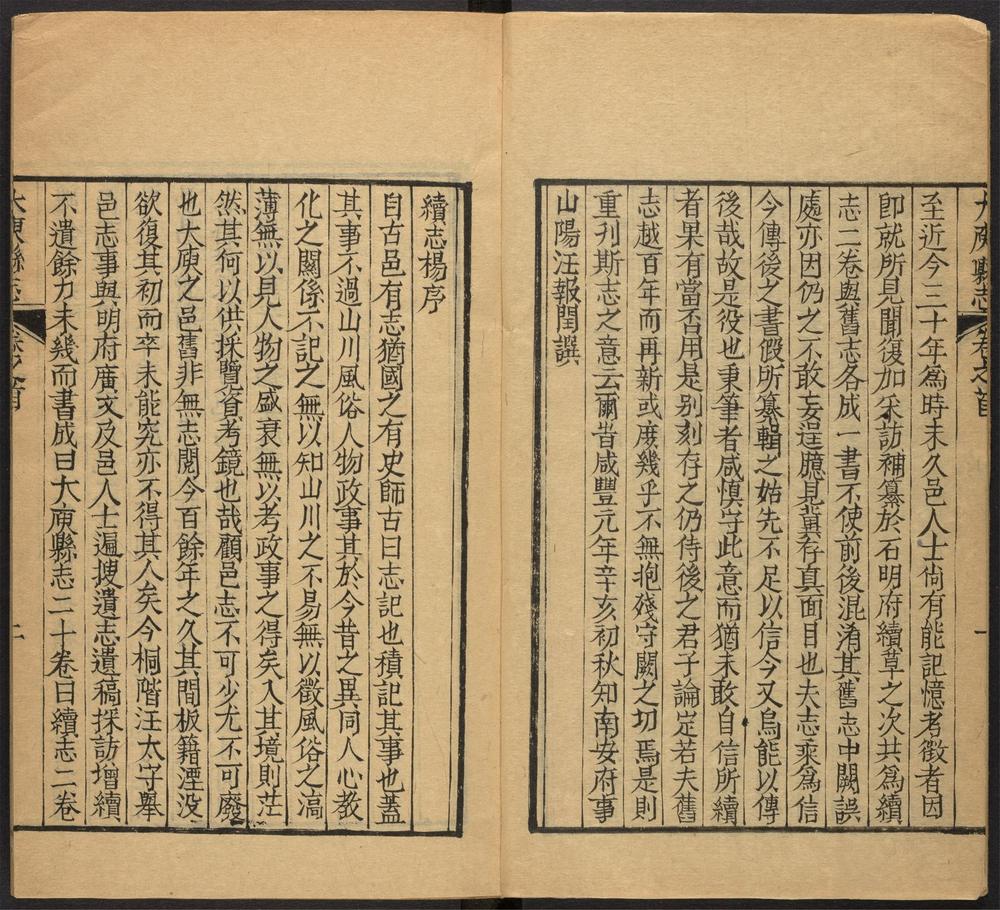 大庾縣志 卷之首 一
至近今三十年爲時未久邑人士尙有能記憶考徵者因
卽就所見聞復加采訪補纂於石明府續草之次共爲續
志二卷與舊志各成一書不使前後混淆其舊志中闕誤
處亦因仍之不敢妄逞臆見冀存眞面目也夫志乘爲信
今傳後之書假所纂輯之始先不足以信今又烏能以傳
後哉故是役也秉筆者咸愼守此意而猶未敢自信所續
者果有當否用是別刻存之仍侍後之君子論定若夫舊
志越百年而再新或庶幾乎不無抱殘守闕之切焉是則
重刊斯志之意云爾旹咸豐元年辛亥初秋知南安府事
山陽汪報閏譔
續志楊序
自古邑有志猶國之有史師古曰志記也積記其事也蓋
其事不過山川風俗人物政事其於今昔之異同人心敎
化之關係不記之無以知山川之不易無以徵風俗之湻
薄無以見人物之盛衰無以考政事之得矣入其境則茫
然其何以供採覽資考鏡也哉顧邑志不可少尤不可廢
也大庾之邑舊非無志閱今百餘年之久其間板籍湮没
欲復其初而卒未能究亦不得其人矣今桐階汪太守舉
邑志事與明府廣文及邑人士遍搜遺志遺稿採訪增續
不遺餘力未幾而書成曰大庾縣志二十卷曰續志二卷
大庾縣志 卷之首 二